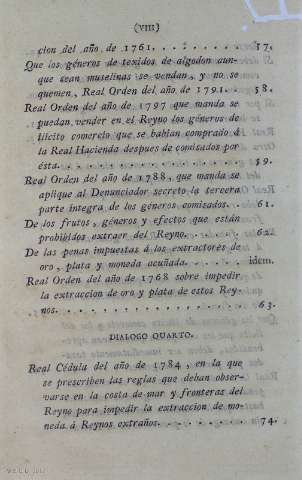 (VIII)
cion del año de 1761. . . . . . . . . 57.
Que los géneros de texidos de algodon aun-
que sean muselinas se vendan, y no se
quemen, Real Orden del año de 1791. . 58.
Real Orden del año de 1797 que manda se
puedan vender en el Reyno los géneros de
ilícito comercio que se habian comprado á
la Real Hacienda despues de comisados por
ésta. . . . . . . . . . . . . . . . 59.
Real Orden del año de 1788, que manda se
aplique al Denunciador secreto la tercera
parte íntegra de los géneros comisados. . . 61.
De los frutos, géneros y efectos que están
prohibidos extraer del Reyno. . . . . . 62.
De las penas impuestas á los extractores de
oro, plata y moneda acuñada. . . . . . idem.
Real Orden del año de 1768 sobre impedir
la extraccion de oro y plata de estos Rey-
nos. . . . . . . . . . . . . . . . . 63.
DIALOGO QUARTO.
Real Cédula del año de 1784, en la que
se prescriben las reglas que deban obser-
varse en la costa de mar y fronteras del
Reyno para impedir la extraccion de mo-
neda á Reynos extraños. . . . . . . . . 74.